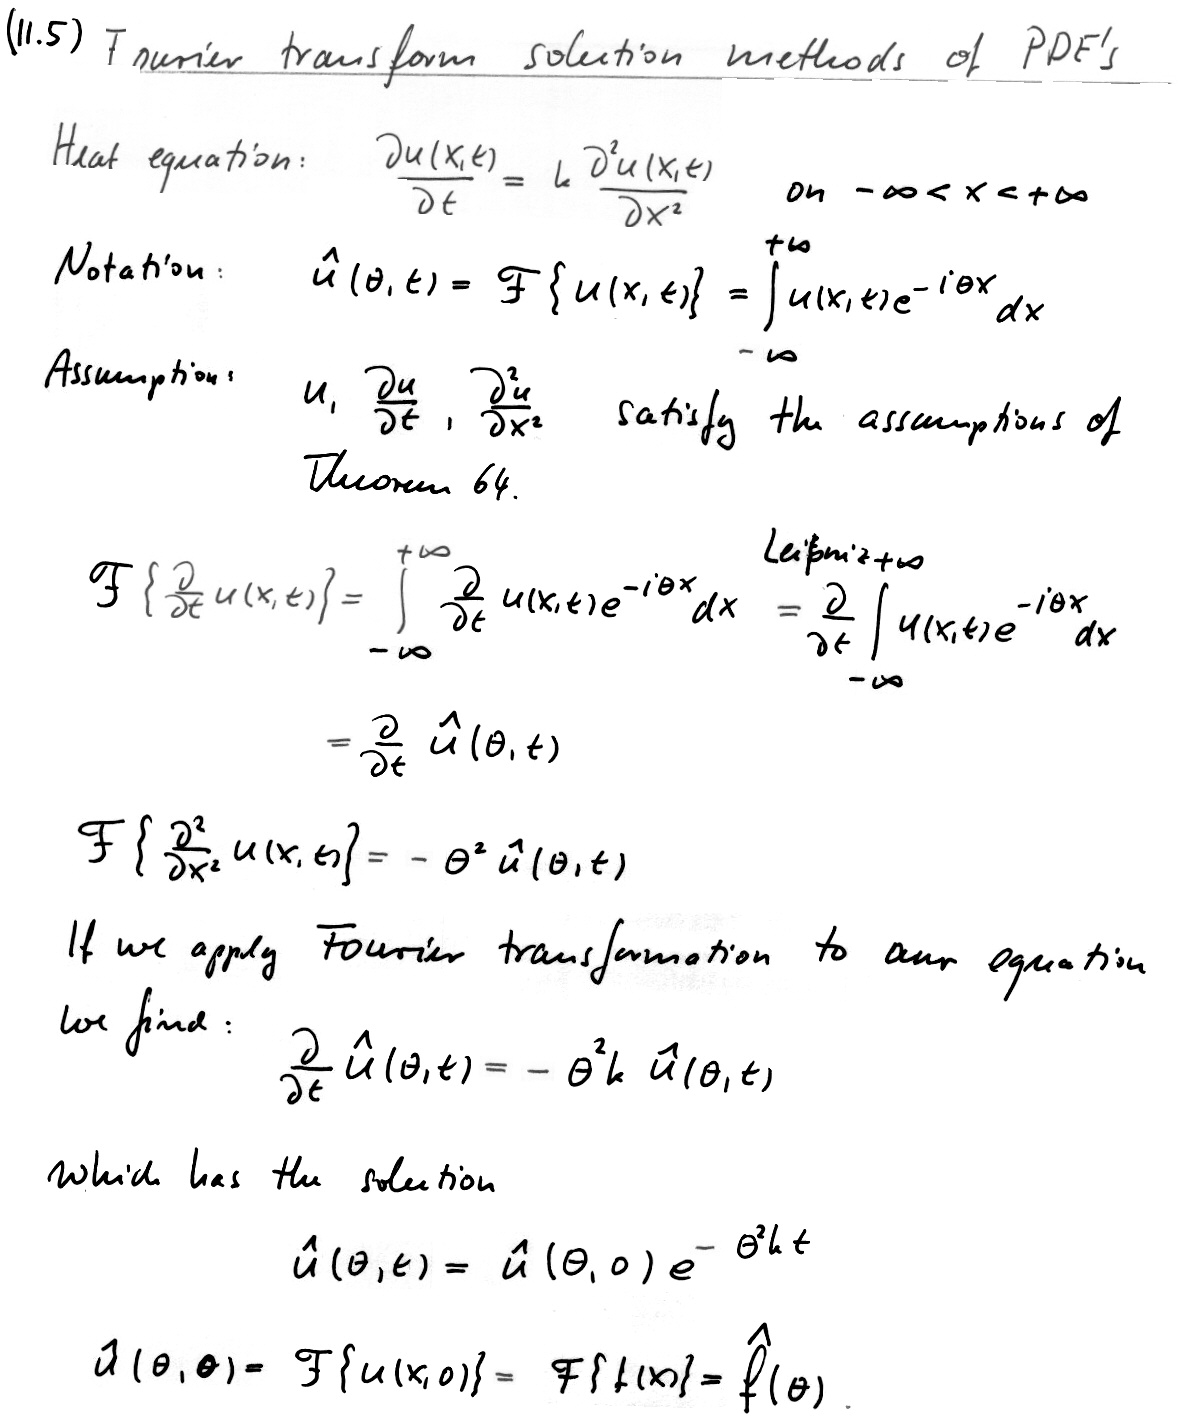 (11.5) Fourier transform solution methods of PDE's
Heat equation: ∂u(x,t)/∂t = k ∂²u(x,t)/∂x² on -∞ < x < +∞
Notation: û(θ,t) = ℱ{u(x,t)} = ∫_{-∞}^{+∞} u(x,t)e^{-iθx} dx
Assumption: u, ∂u/∂t, ∂²u/∂x² satisfy the assumptions of
Theorem 64.
ℱ{∂/∂t u(x,t)} = ∫_{-∞}^{+∞} ∂/∂t u(x,t)e^{-iθx} dx =^{Leibniz} ∂/∂t ∫_{-∞}^{+∞} u(x,t)e^{-iθx} dx
= ∂/∂t û(θ,t)
ℱ{∂²/∂x² u(x,t)} = - θ² û(θ,t)
If we apply Fourier transformation to our equation
we find:
∂/∂t û(θ,t) = - θ²k û(θ,t)
which has the solution
û(θ,t) = û(θ,0) e^{-θ²kt}
û(θ,0) = ℱ{u(x,0)} = ℱ{f(x)} = f̂(θ).